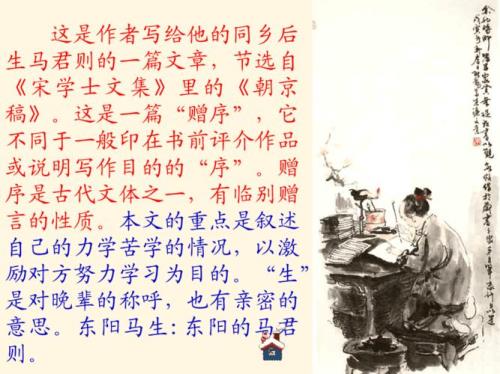 这是作者写给他的同乡后
生马君则的一篇文章，节选自
《宋学士文集》里的《朝京
稿》。这是一篇“赠序”，它
不同于一般印在书前评介作品
或说明写作目的的“序”。赠
序是古代文体之一，有临别赠
言的性质。本文的重点是叙述
自己的力学苦学的情况，以激
励对方努力学习为目的。“生”
是对晚辈的称呼，也有亲密的
意思。东阳马生：东阳的马君
则。